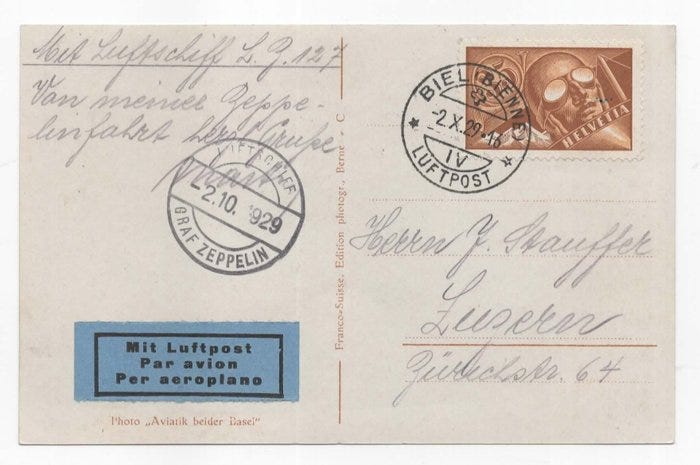 Mit Luftschiff L. Z. 127
Von meiner Zeppe-
linfahrt herzl. Grüße
LUFTSCHIFF
-2.10.1929
GRAF ZEPPELIN
Mit Luftpost
Par avion
Per aeroplano
Photo „Aviatik beider Basel"
Franco-Suisse. Edition photogr., Berne. C
BIEL (BIENNE)
-2.X.29-16
IV
LUFTPOST
HELVETIA
Herrn J. Stauffer
Luzern
Zürichstr. 64